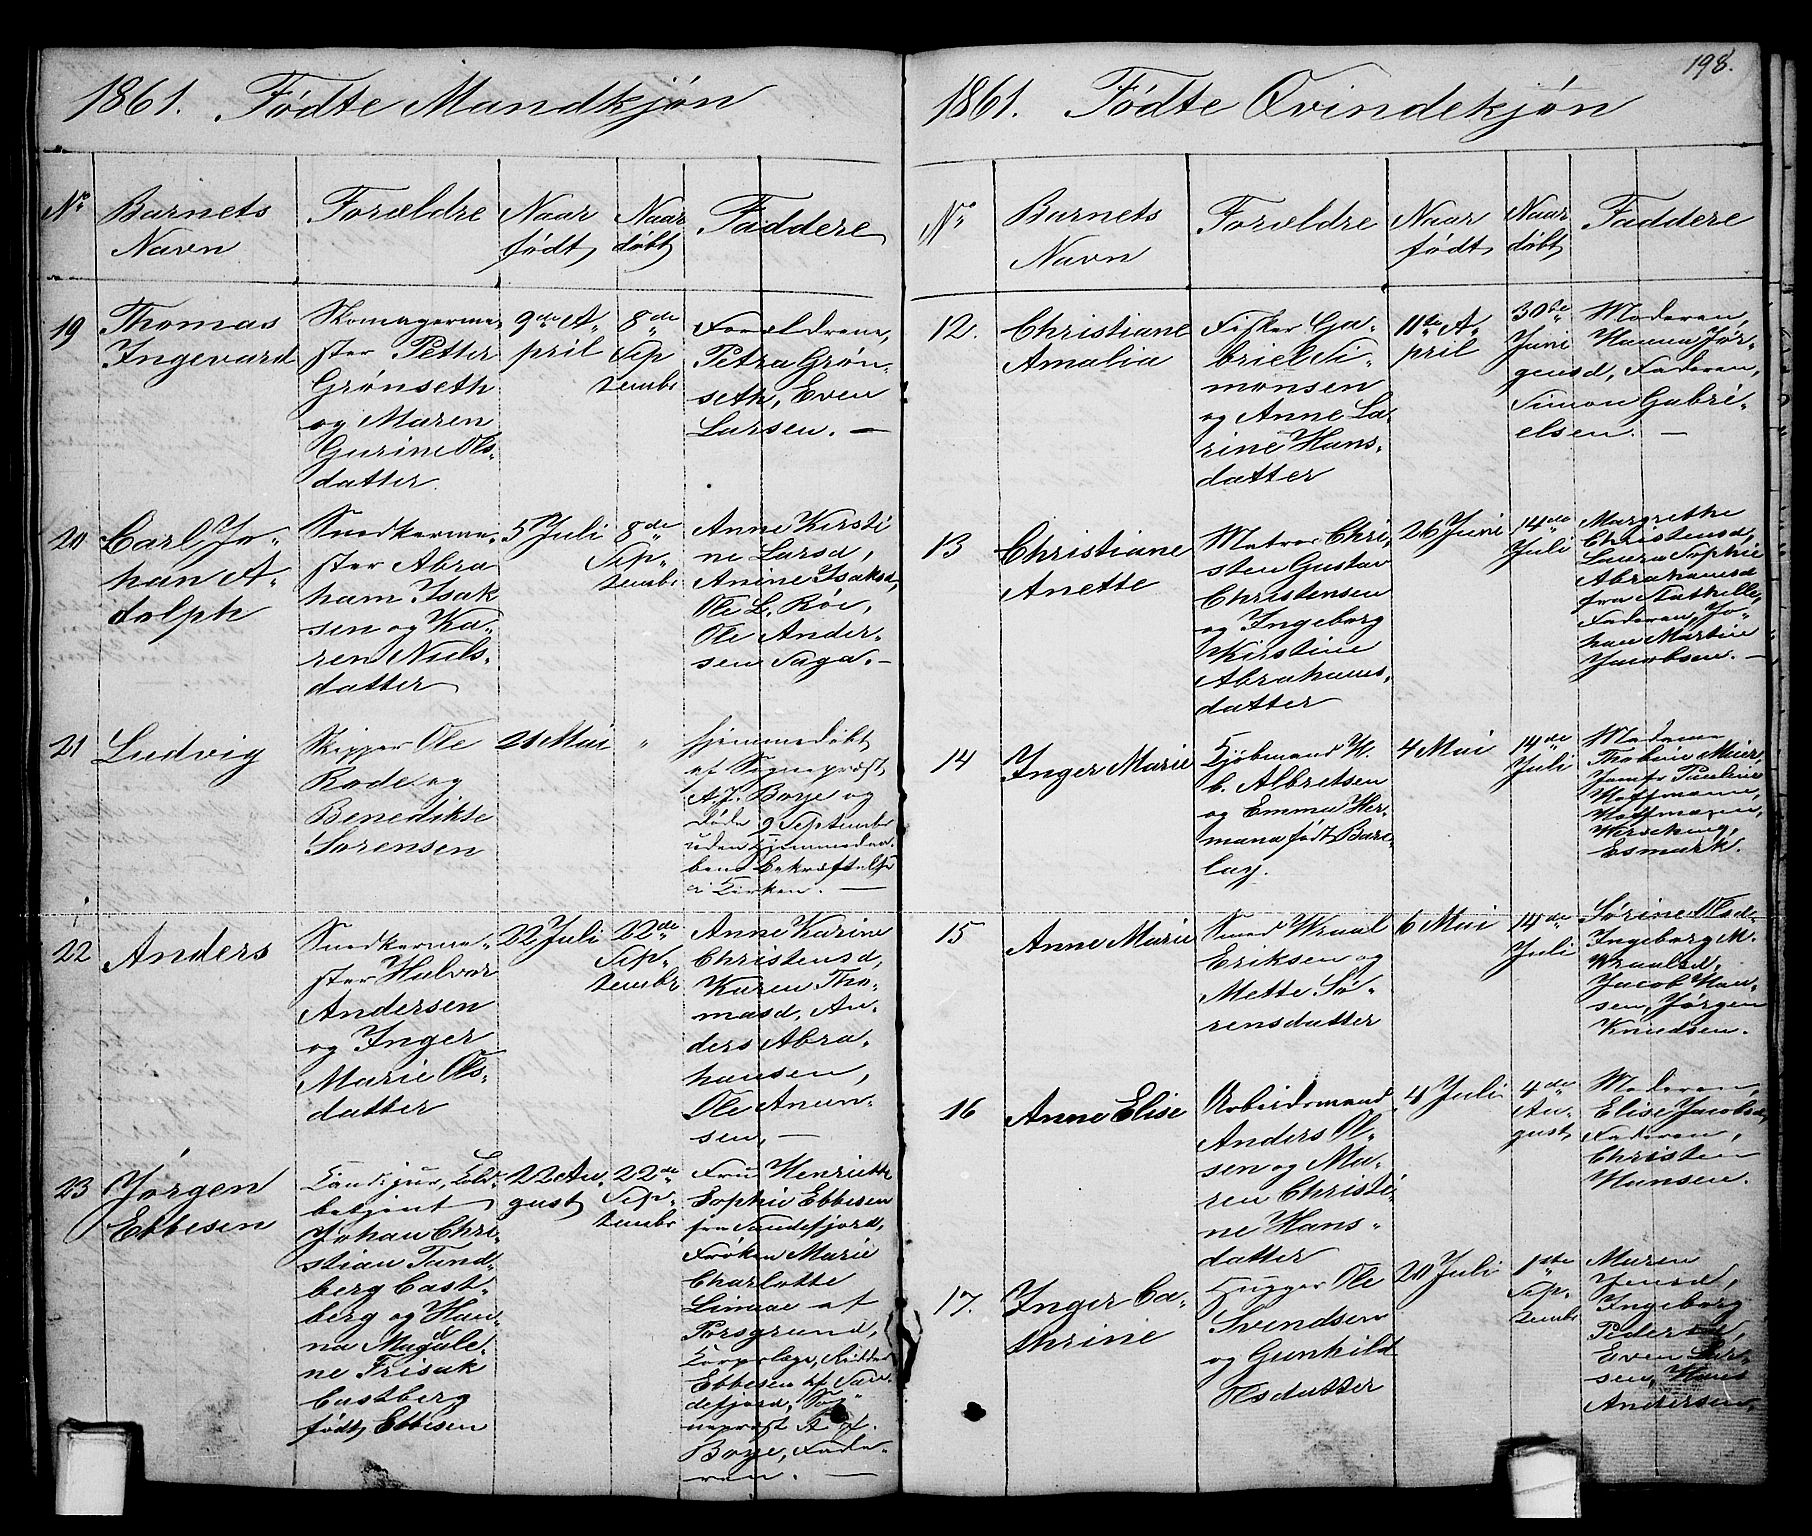 1861. Fødte Mandkjøn
No
Barnets
Navn
Forældre
Naar
født
Naar
døbt
Faddere
19
Thomas
Ingevard
Skomagerme-
ster Petter
Grønseth
og Maren
Gurine Ols-
datter.
9de A-
pril
8de
Sep-
tembr
Forældrene,
Petra Grøn-
seth, Even
Larsen. —
20
Carl Jo-
han A-
dolph
Snedkerme-
ster Abra
ham Isak
sen og Ka-
ren Niels-
datter
5 Juli
8de
Sep-
tembr
Anne Kirsti
ne Larsd,
Anine Isaksd,
Ole L. Röe,
Ole Ander-
sen Saga. —
21
Ludvig
Skipper Ole
Rode og
Benedikte
Sørensen
21 Mai
"
hjemmedøbt
af Sognepræst
A. J. Borje og
døde 9 Septembr
uden Hjemmedaa-
bens Bekræftelse
i Kirken. —
22
Anders
Snedkerme-
ster Halvor
Andersen
og Inger
Marie Ols-
datter
22 Juli
22de
Sep-
tembr
Anne Karine
Christensd,
Karen Tho-
masd, An-
ders Abra-
hansen,
Ole Anun-
sen, —
23
Jørgen
Ebbesen
Johan Chri-
stian Tand-
berg Cast-
berg og Han-
na Magdale-
ne Frisak
Castberg
født Ebbesen
22 Au-
gust
22de
Sep-
tembr
Fru Henriette
Sophie Ebbesen
fra Sandefjord,
Frøken Marie
Charlotte
Linaae af
Porsgrund,
Korpslæge, Ridder
Ebbesen af San-
defjord, Sog-
nepræst A. J.
Borje, Fade-
ren. —
198.
1861. Fødte Qvindekjøn
No
Barnets
Navn
Forældre
Naar
født
Naar
døbt
Faddere
12.
Christiane
Amalia
Fisker Ga-
briel Si-
monsen
og Anne La-
rine Hans-
datter
11te A-
pril
30te
Juni
Moderen,
Hanna Jør-
gensd, Faderen,
Simon Gabri-
elsen. —
13
Christiane
Anette
Matros Chri-
sten Gustav
Christensen
og Ingeborg
Kirstine
Abrahams-
datter
26 Juni
14de
Juli
Margrethe
Christensd,
Laura Sophie
Abrahamsd
fra Stathelle,
Faderen, Jo-
han Martin
Jacobsen. —
14
Inger Marie
Kjøbmand H.
C. Albretsen
og Emma Her-
mana født Barc-
lay.
4 Mai
14de
Juli
Madame
Thobine Meier,
Jomfr Pauline
Hoffmann,
Hoffmann,
Esmark.
15
Anne Marie
Smed Wraal
Eriksen og
Mette Sø-
rensdatter
6 Mai
14de
Juli
Sørine Olsd,
Ingeborg M.
Wraalsd,
Jacob Han-
sen, Jørgen
Knudsen.
16
Anne Elise
Arbeidsmand
Anders Ol-
sen og Ma-
ren Christi-
ne Hans-
datter
4 Juli
4de
Au-
gust
Moderen,
Elise Jacobsd,
Faderen,
Christen
Hansen.
17.
Inger Ca-
thrine
Hugger Ole
Svendsen
og Gunhild
Olsdatter
20 Juli
1ste
Sep-
tembr
Maren
Jensd,
Ingeborg
Pedersd,
Even Lar-
sen, Hans
Andersen,